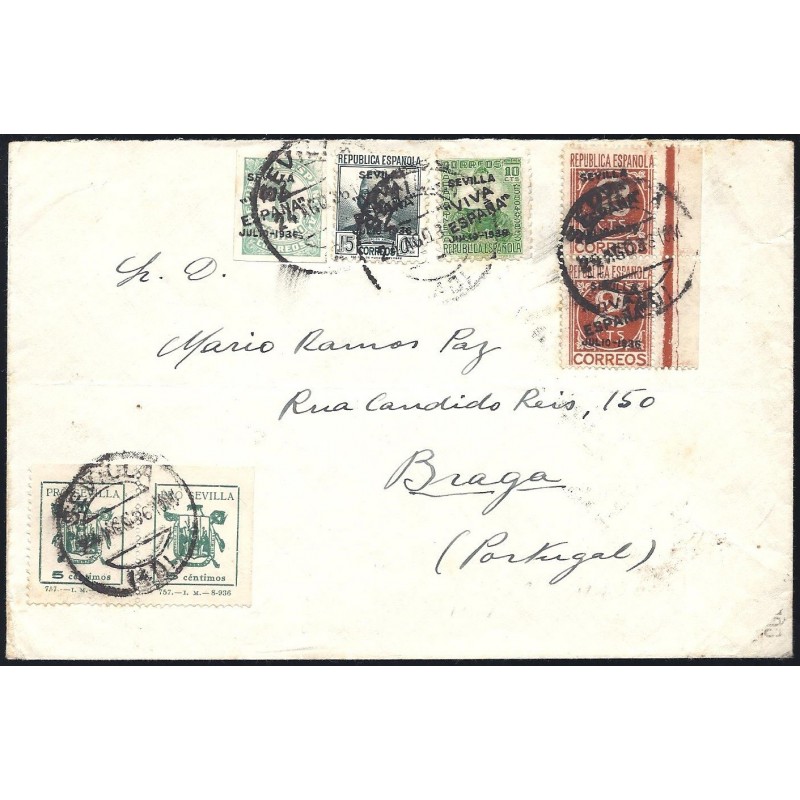 SEVILLA
"VIVA
ESPAÑA"
JULIO-1936
CORREOS
REPUBLICA ESPAÑOLA
SEVILLA
JULIO-1936
15
CORREOS
CORREOS
10
CTS
SEVILLA
"VIVA
ESPAÑA"
JULIO-1936
REPUBLICA ESPAÑOLA
REPUBLICA ESPAÑOLA
CORREOS
REPUBLICA ESPAÑOLA
"VIVA
ESPAÑA"
CTS
JULIO-1936
CORREOS
Sr. D.
Mario Ramos Paz
Rua Candido Reis, 150
Braga
(Portugal)
SEVILLA
PRO SEVILLA
SEVILLA
5 céntimos
céntimos
757.—I. M.—8-936
757.—I. M.—8-936